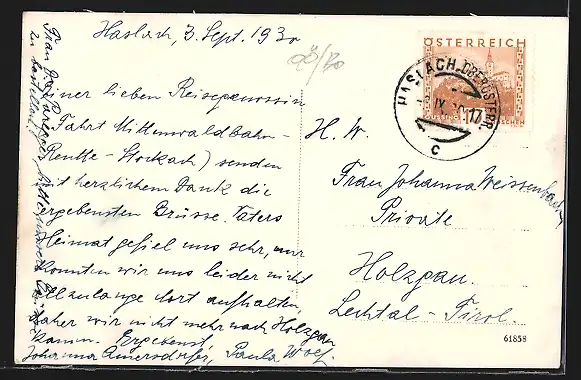 Haslach, 3. Sept. 1930
Meiner lieben Reisegenossin
(Fahrt Mittenwaldbahn -
Reutte - Stockach) senden
mit herzlichem Dank die
ergebensten Grüsse. Vaters
Heimat gefiel uns sehr, nur
konnten wir uns leider nicht
allzulange dort aufhalten,
daher wir nicht mehr nach Holzgau
kamen. Ergebenst
Johanna Paula Wolf
Frau
zu bestellen!
ÖSTERREICH
HASLACH, OBERÖSTERR.
IX
17
c
H. W.
Frau Johanna Weissenbach
Private
Holzgau.
Lechtal - Tirol.
61858